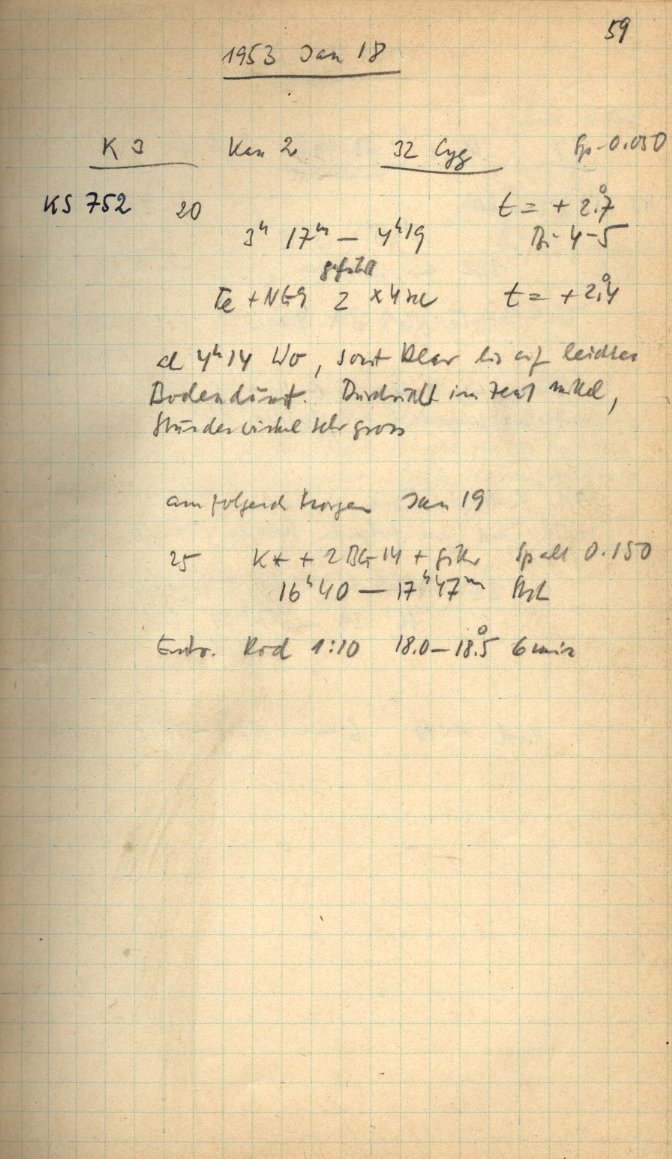 59
1953 Jan 18
K 3 Kam 2 32 Cyg Sp-0.050
KS 752 20 t = + 2.°7
3h 17m — 4h19 Bi 4-5
Fe + NG9 2 x 4 sec t = + 2.°4
4h14 Wo, sonst klar bis auf leichten
Bodendunst. Durchsicht im Zenit mittel,
Stundenwinkel sehr gross
am folgend Morgen Jan 19
25 + 2 BG 14 + Spalt 0.150
16h40 — 17h47m
Entw. Rod 1:20 18.0 — 18.°5 6 min